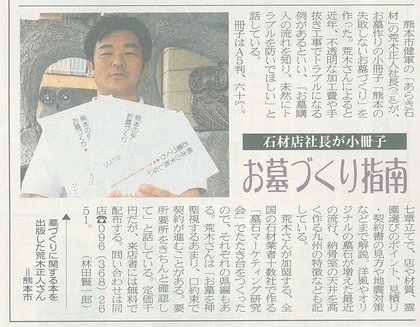 石材店社長が小冊子
お墓づくり指南
熊本市健軍の「あらき石
材」の荒木正人社長
が、
お墓作りの小冊子「熊本の
失敗しないお墓づくり」を
作った。荒木さんによると
近年、不透明な加工費や手
抜き工事でトラブルになる
例があるといい、「お墓購
入の流れを知り、未然にト
ラブルを防いでほしい」と
話している。
冊子はA5判、六十六
七頁立てで、店や材質、霊
園選びのポイント、見積り
・契約書の見方や地震対策
などまで解説。洋風やオリ
ジナルの墓石が増えた最近
の流行、納骨室の天井を高
く作る九州の特徴なども記
している。
荒木さんが加盟する、全
国の石材業者十数社で作る
「墓石マーケティング研究
会」でたたき台をつくった
ので、それぞれの県編もあ
る。荒木さんは「お墓を神
聖視するあまり、口約束で
契約が進むことがある。要
所要所をきちんと確認し
て」と話している。定価千
円だが、来店者には無料で
配布する。問い合わせは同
店☎096(368)26
51。
(林田賢一郎)
墓づくりに関する本を
出版した荒木正人さん
=熊本市